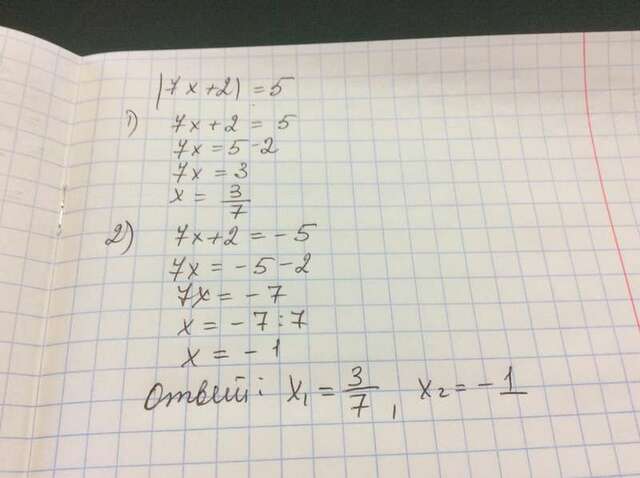 |7x+2| = 5
1) 7x+2 = 5
7x = 5-2
7x = 3
x = 3/7
2) 7x+2 = -5
7x = -5-2
7x = -7
x = -7:7
x = -1
Ответ: x₁ = 3/7, x₂ = -1